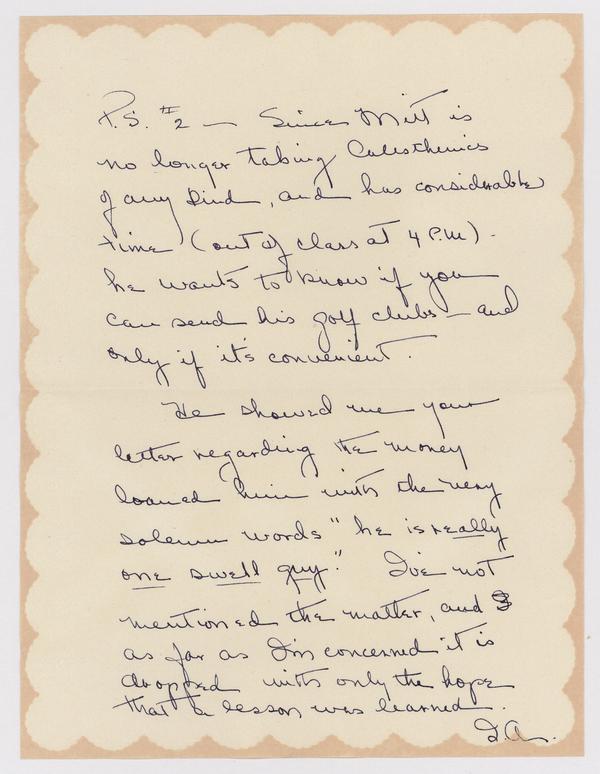 P.S. #2 — Since Milt is
no longer taking Calesthenics
of any kind, and has considerable
time (out of class at 4 P.M) -
he wants to know if you
can send his golf clubs — and
only if it's convenient.
He showed me your
letter regarding the money
loaned him with the very
solemn words "he is really
one swell guy." I've not
mentioned the matter, and
as far as I'm concerned it is
dropped with only the hope
that a lesson was learned.